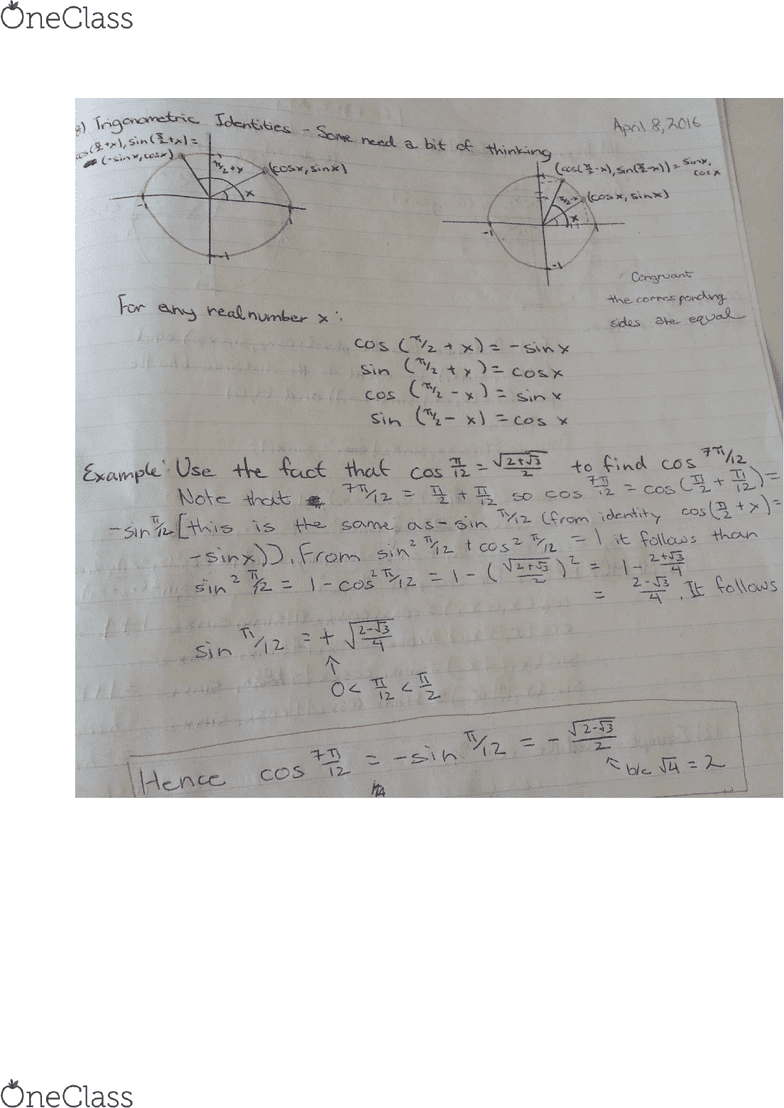 OneClass
g) Trigonometric Identities - Some need a bit of thinking
April 8, 2016
cos(π/2+x), sin(π/2+x) =
(-sinx, cosx)
π/2+x
(cosx, sinx)
x
-1
1
-1
(cos(π/2-x), sin(π/2-x)) = sinx,
cosx
π/2-x
(cosx, sinx)
x
-1
-1
Congruant
the corresponding
sides are equal
For any real number x:
cos (π/2 + x) = -sinx
sin (π/2 + x) = cosx
cos (π/2 - x) = sin x
sin (π/2 - x) = cos x
Example: Use the fact that cos π/12 = √(2+√3)/2 to find cos 7π/12
Note that 7π/12 = π/2 + π/12 so cos 7π/12 = cos(π/2 + π/12) =
-sin π/12 [this is the same as -sin π/12 (from identity cos(π/2 + x) =
-sinx)]. From sin² π/12 + cos² π/12 = 1 it follows than
sin² π/12 = 1 - cos² π/12 = 1 - (√(2+√3)/2)² = 1 - (2+√3)/4
= (2-√3)/4. It follows
sin π/12 = + √((2-√3)/4)
↑
0 < π/12 < π/2
Hence cos 7π/12 = -sin π/12 = - √(2-√3)/2
↖ b/c √4 = 2
OneClass